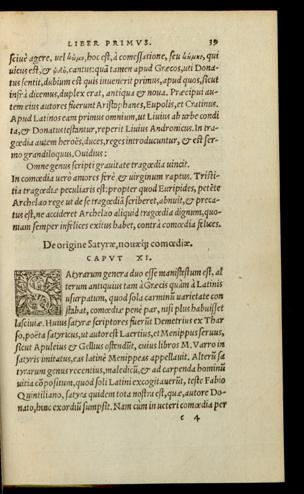 LIBER PRIMVS. 39
sciuè agere, uel κῶμος, hoc est, à comessatione, seu κώμης, qui
uicus est, & ᾠδὴ, cantus: quā tamen apud Græcos, uti Dona-
tus sentit, dubium est quis inuenerit primus, apud quos, sicut
infrà dicemus, duplex erat, antiqua & noua. Præcipui au-
tem eius autores fuerunt Aristophanes, Eupolis, et Cratinus.
Apud Latinos eam primus omnium, ut Liuius ab urbe condi
ta, & Donatus testātur, reperit Liuius Andronicus. In tra-
gœdia autem heroës, duces, reges introducuntur, & est ser-
mo grandiloquus. Ouidius:
Omne genus scripti grauitate tragœdia uincit.
In comœdia uerò amores ferè & uirginum raptus. Tristi-
tia tragœdiæ peculiaris est: propter quod Euripides, petēte
Archelao rege ut de se tragœdiā scriberet, abnuit, & preca-
tus est, ne accideret Archelao aliquid tragœdia dignum, quo-
niam semper infelices exitus habet, contrà comœdia felices.
De origine Satyræ, nouæq; comœdiæ.
CAPVT XI.
SAtyrarum genera duo esse manifestum est, al
terum antiquius tam à Græcis quàm à Latinis
usurpatum, quod sola carminū uarietate con
stabat, comœdiæ penè par, nisi plus habuisset
lasciuiæ. Huius satyræ scriptores fuerūt Demetrius ex Thar
so, poëta satyricus, ut autor est Laertius, et Menippus seruus,
sicut Apuleius & Gellius ostendūt, cuius libros M. Varro in
satyris imitatus, eas latinè Menippeas appellauit. Alterū sa
tyrarum genus recentius, maledicū, & ad carpenda hominū
uitia cōpositum, quod soli Latini excogitauerūt, teste Fabio
Quintiliano, satyra quidem tota nostra est, quæ, autore Do-
nato, hinc exordiū sumpsit. Nam cùm in ueteri comœdia per
c 4